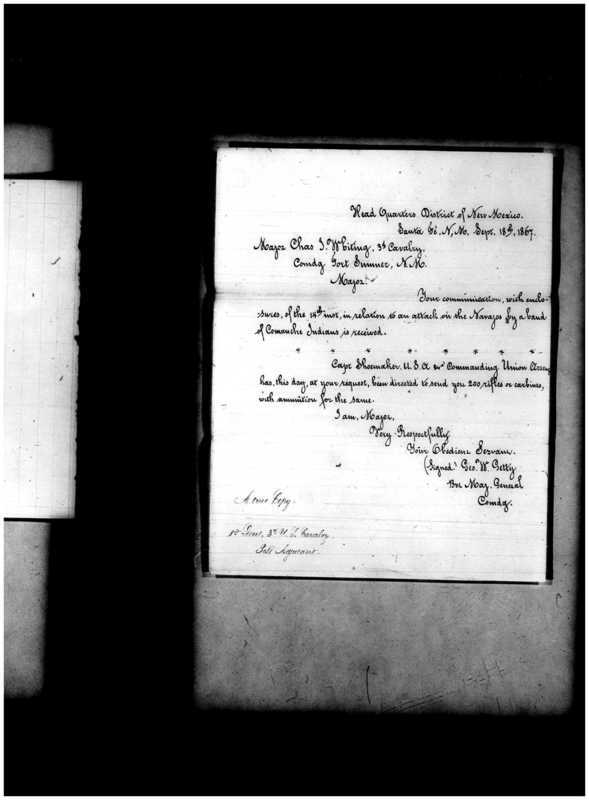 Head Quarters District of New Mexico.
Santa Fé, N.M. Sept. 18th, 1867.
Major Chas J. Whiting, 3d Cavalry,
Comdg Fort Sumner, N.M.
Major:
Your communication, with enclo-
sures, of the 14th inst, in relation to an attack on the Navajos by a band
of Comanche Indians, is received.
* * * * * * * *
Capt Shoemaker, U.S.A. Commanding Union Arsenal
has, this day, at your request, been directed to send you 200, rifles or carbines,
with ammution for the same.
I am, Major,
Very Respectfully
Your Obedient Servant.
(Signed) Geo. W. Getty
Bvt Maj. General
Comdg.
A true Copy.
1st Lieut, 3d U.S. Cavalry
Post Adjutant